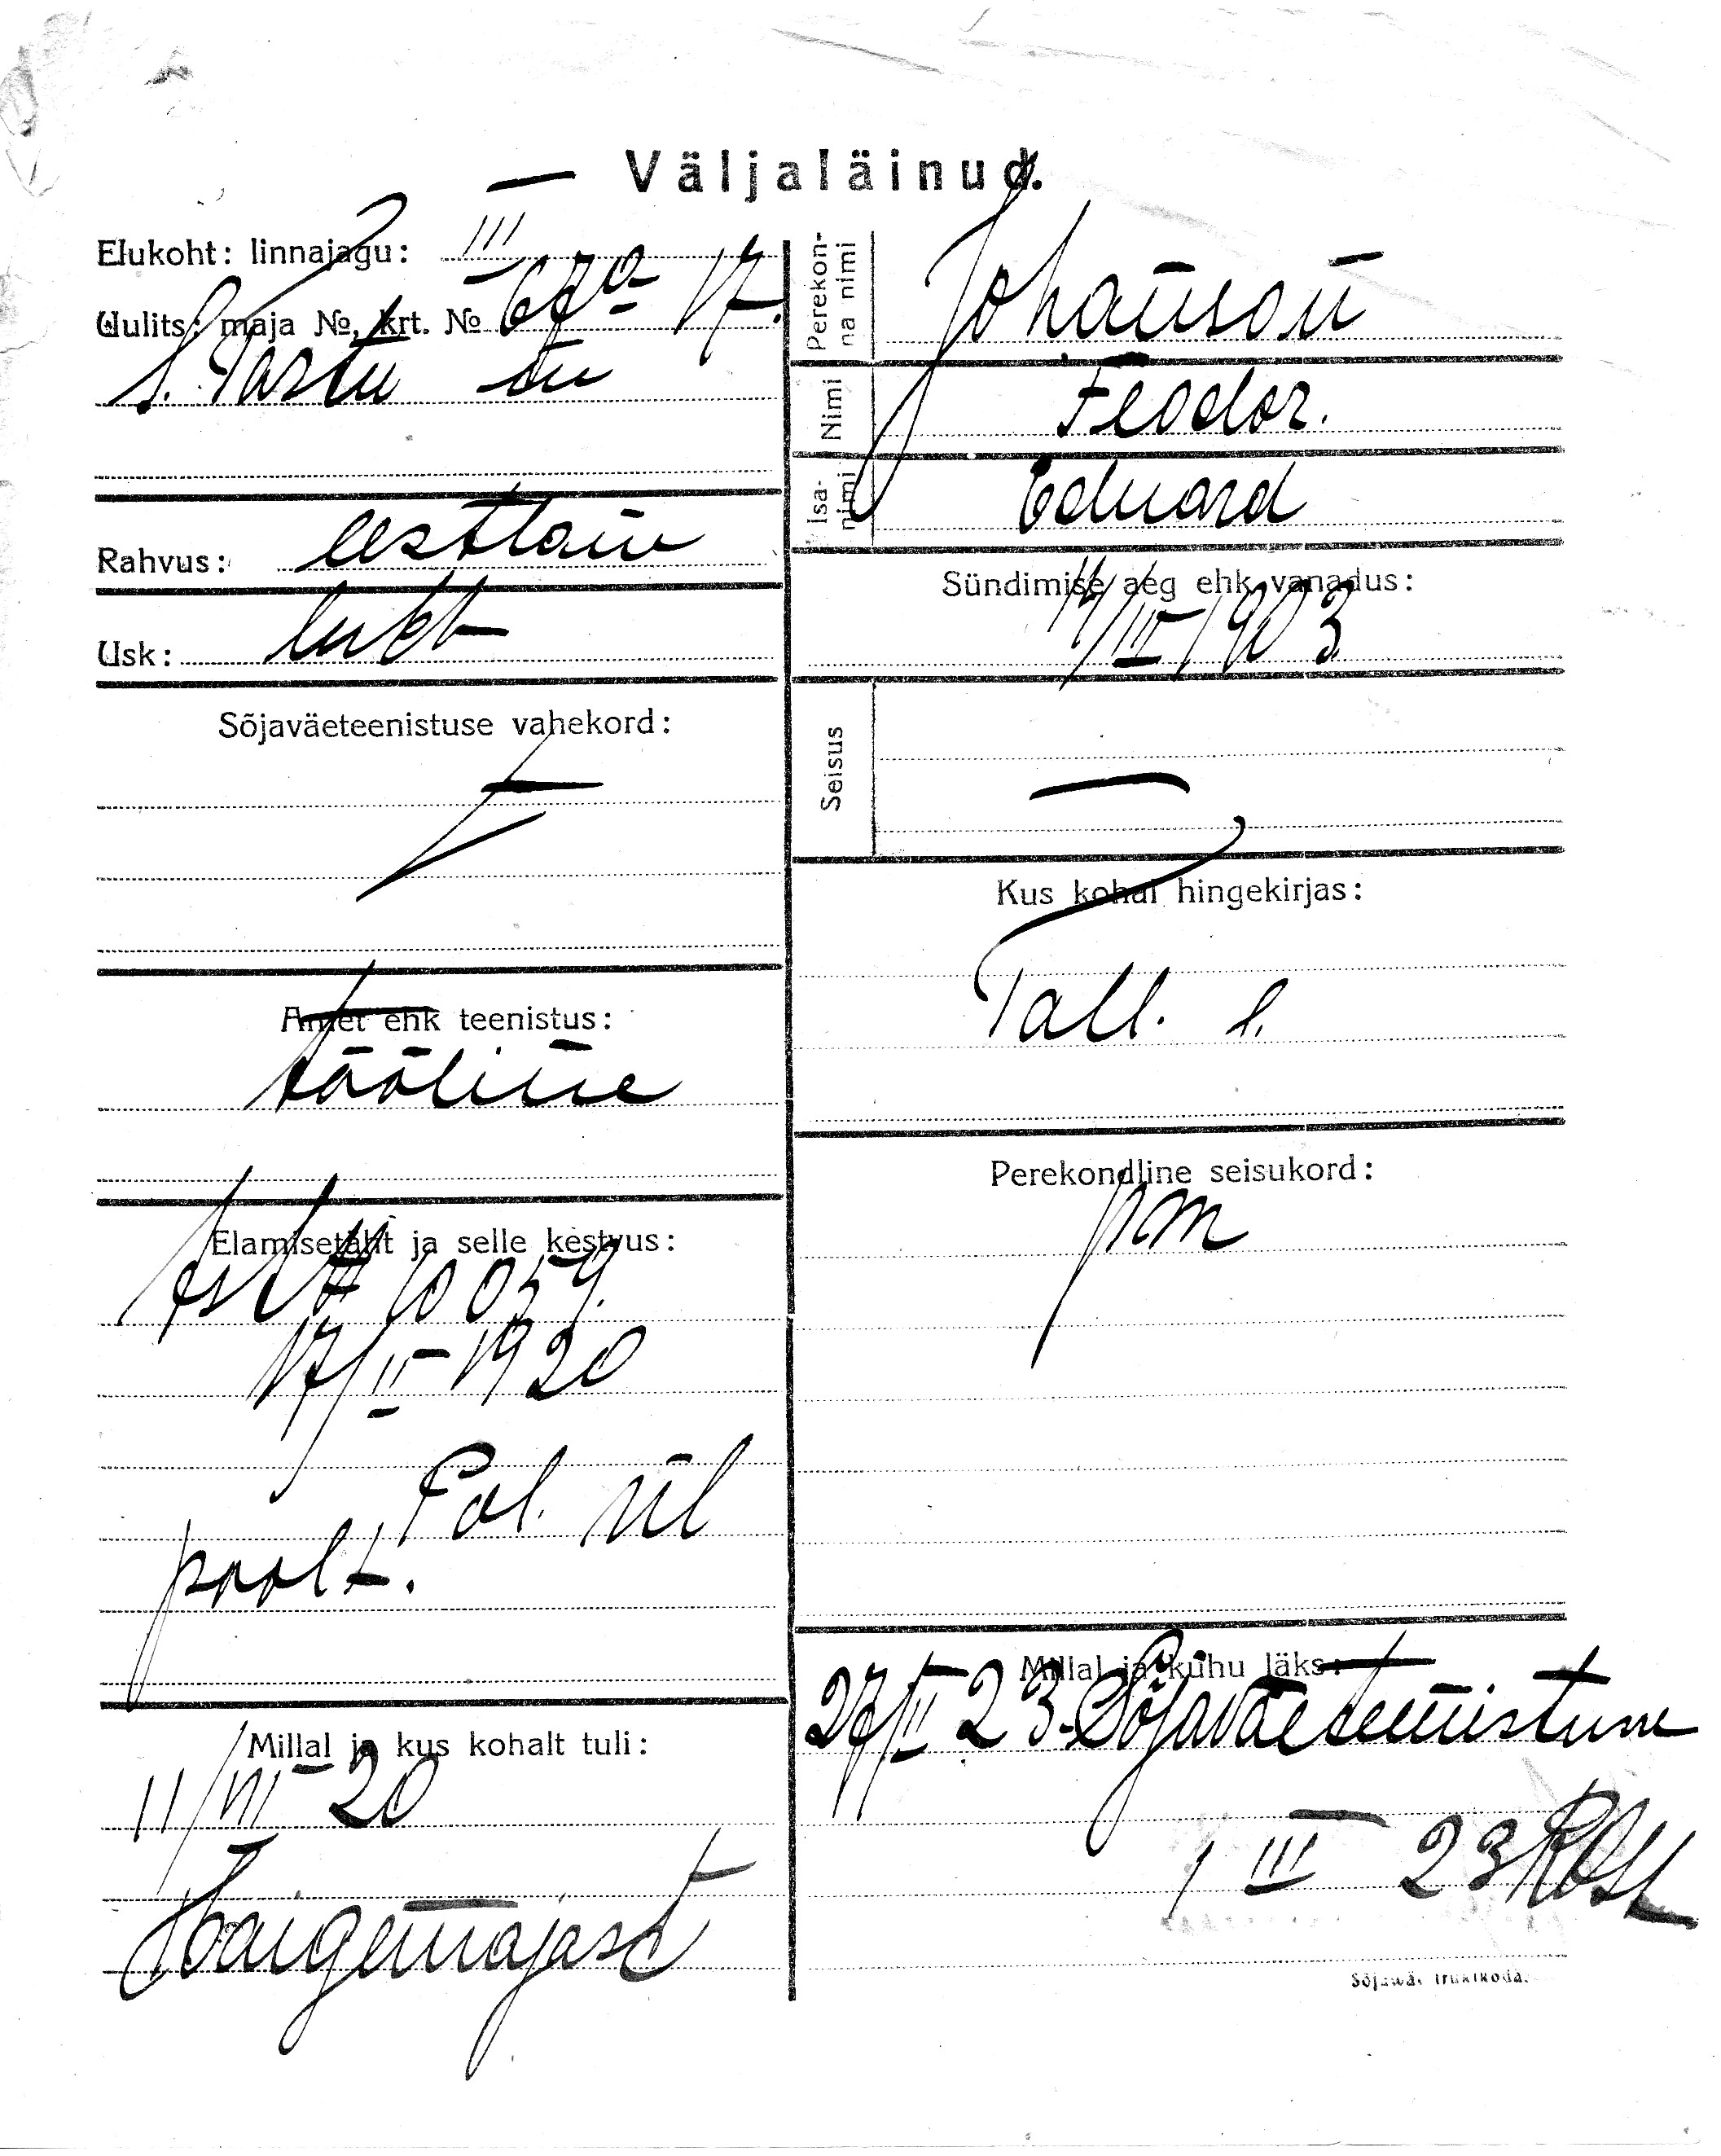 Väljaläinud.
Elukoht: linnajagu: III
Uulits: maja №, krt. № 67a 17.
S. Tartu tn
Rahvus: eestlane
Usk: lutt
Sõjaväeteenistuse vahekord:
—
Amet ehk teenistus:
tööline
Elamisetäht ja selle kestvus:
10059.
17/II 1920
Pol. ül
poolt.
Millal ja kus kohalt tuli:
11/VI 20
Haigemajast
Perekonna nimi Johanson
Nimi Feodor.
Isanimi Eduard
Sündimise aeg ehk vanadus:
14/III 1903
Seisus —
Kus kohal hingekirjas:
Tall. l.
Perekondline seisukord:
pm
Millal ja kuhu läks:
27/II 23. Sõjaväeteenistuse
1 III 23
Sõjawäe trükikoda.